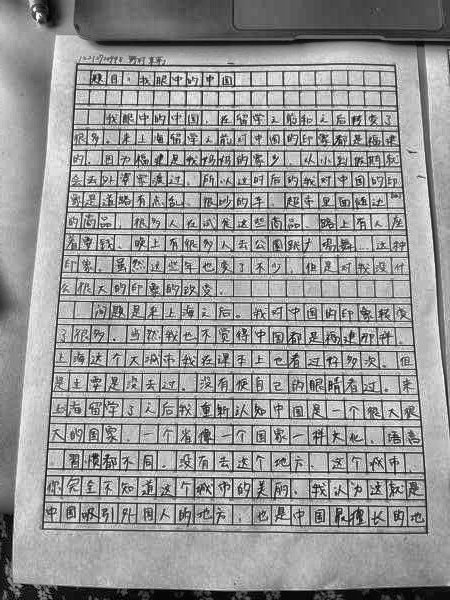 题目：我眼中的中国
我眼中的中国，在留学之前和之后转变了
很多。来上海留学之前对中国的印象都是福建
的，因为福建是我妈妈的家乡，从小到大假期就
会去外婆家渡过。所以这时后的我对中国的印
象是道路有点乱、很吵的车、超市里面
的商品、很多人在试食这些商品、路上有人座
着要钱、晚上有很多人去公园跳广场舞。这种
印象，虽然这些年也变了不少，但是对我没什
么很大的印象的改变。
问题是来上海之后。我对中国的印象转变
了很多。当然我也不觉得中国都是福建那样。
上海这个大城市我在课本上也看过好多次。但
是主要是没去过，没有使自己的眼睛看过。来
上海留学了之后我重新认知中国是一个很大很
大的国家。一个省像一个国家一样文化、语言
習慣都不同。没有去这个地方、这个城市，
你完全不知道这个城市的美丽。我认为这就是
中国吸引外国人的地方，也是中国最擅长的地